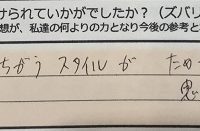 けられていかがでしたか？（ズバリ
想が、私達の何よりの力となり今後の参考と
ちがう スタイルが ため
思